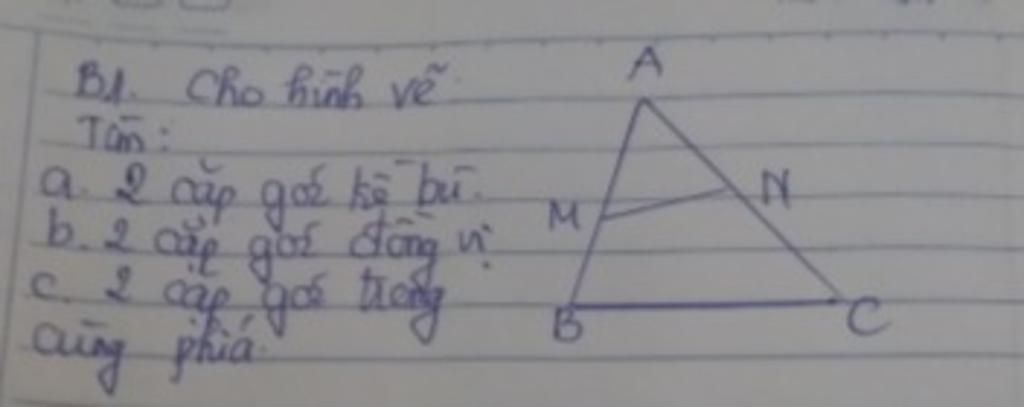 B1. Cho hình vẽ
Tìm:
a. 2 cặp góc kề bù.
b. 2 cặp góc đồng vị
c. 2 cặp góc trong
cùng phía.
A
M
N
B
C